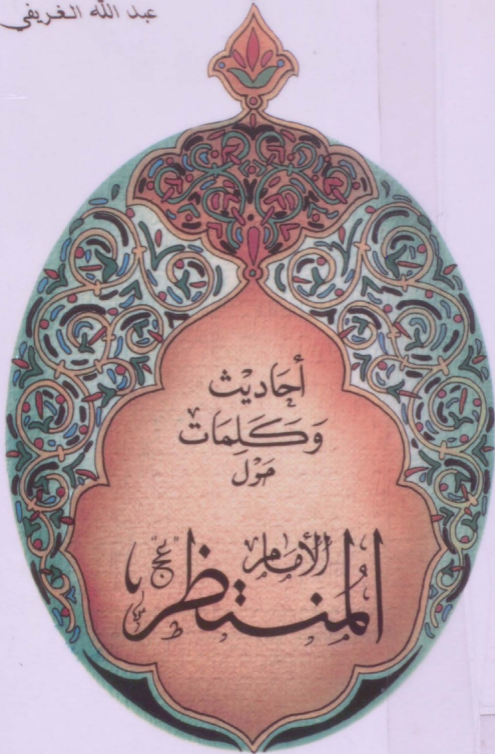 عبد الله الغريفي
أحَاديْث
وَكَلِمَات
حَوْل
الإمَام
المُنتظر "عج"